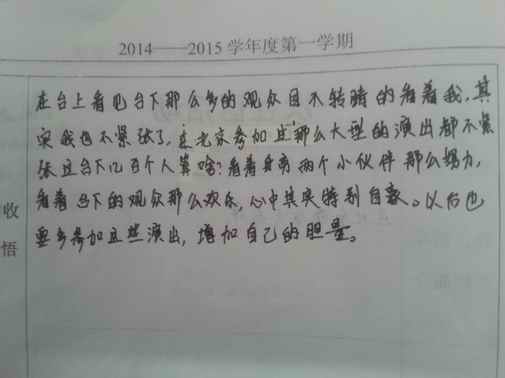 2014——2015学年度第一学期
在台上看见台下那么多的观众目不转睛的看着我,其
实我也不紧张了,在北京参加过那么大型的演出都不紧
张这台下几百个人算啥?看着身旁两个小伙伴那么努力,
看着台下的观众那么欢乐,心中其实特别自豪。以后也
要多参加这些演出,增加自己的胆量。
收
悟